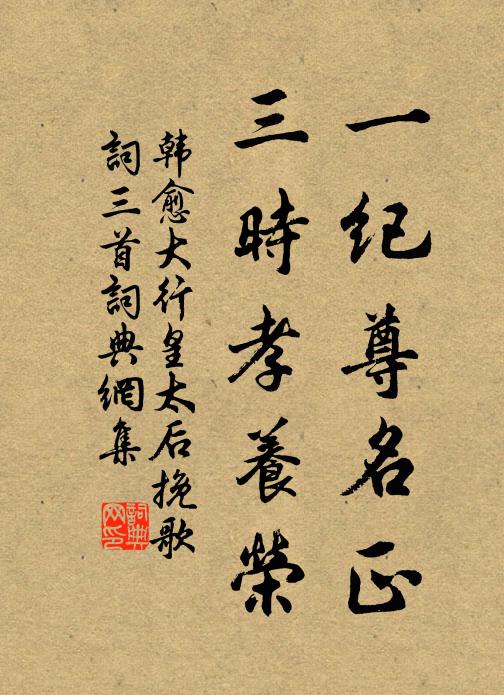 一纪尊名正
三時孝養榮
韩愈大行皇太后挽歌
詞三首詞典網集
詞典网印